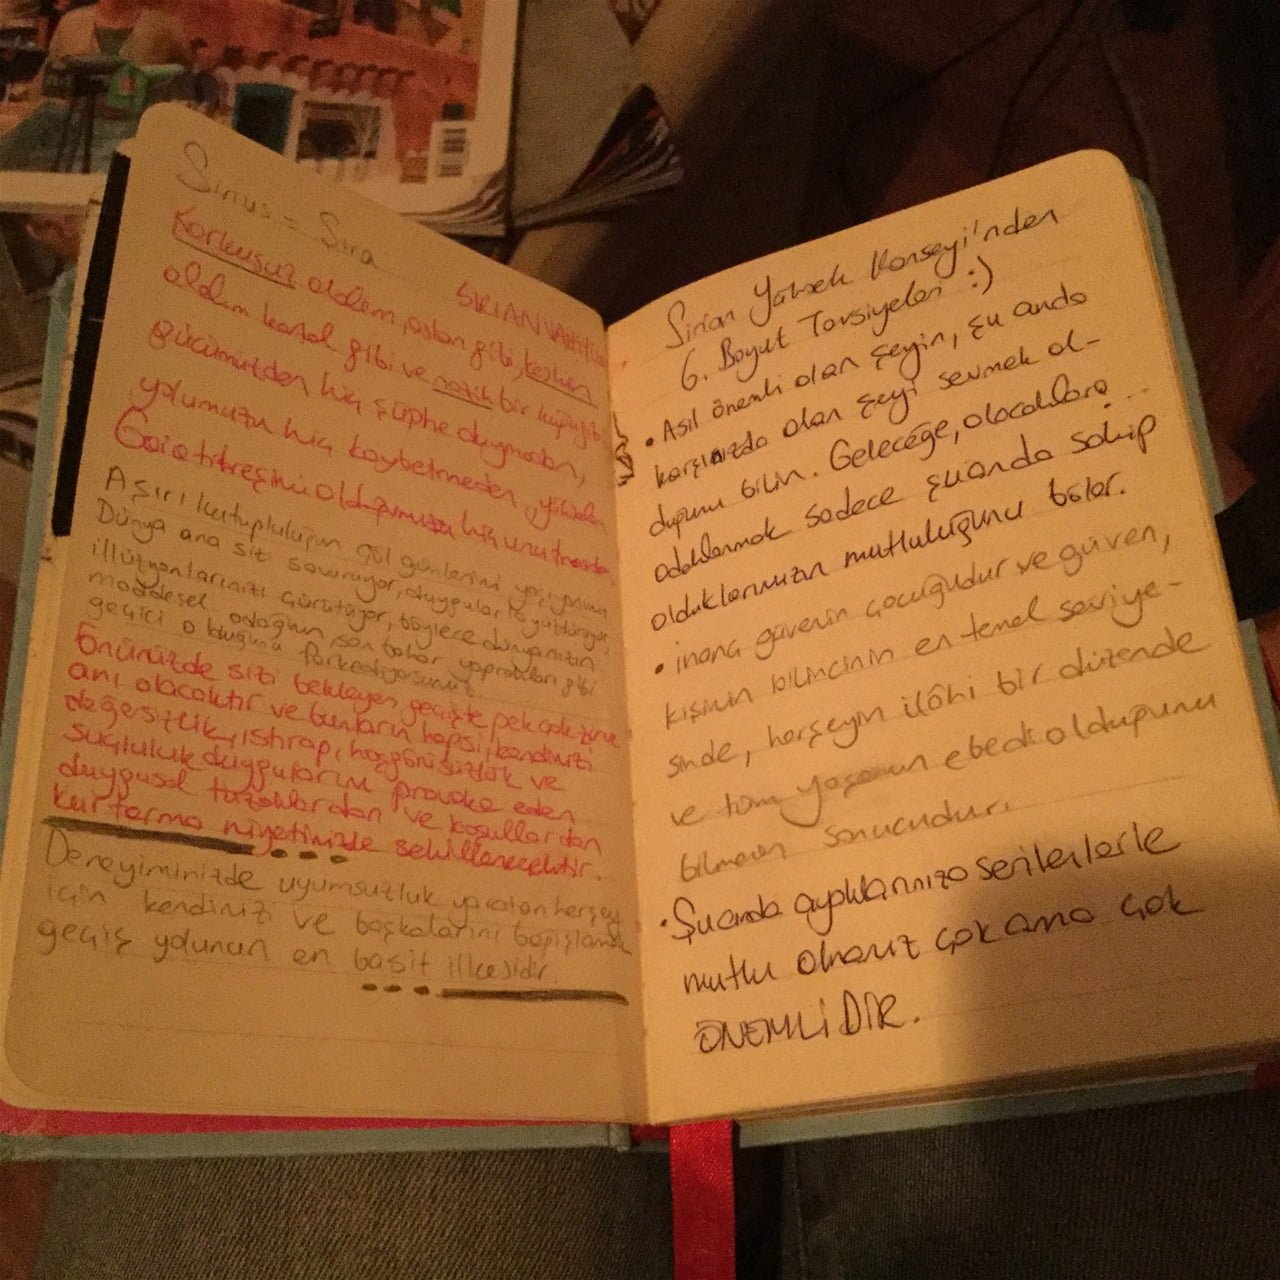 Sirius = Sıra
SIRIAN
Korkusuz olalım aslan gibi, keskin
olalım kartal gibi ve nazik bir kuğu gibi
gücümüzden hiç şüphe duymadan,
yolumuzu hiç kaybetmeden,
Gaia titreşimi olduğumuzu hiç unutmadan
Aşırı kutupluluğun çöl günlerini yaşıyorsunuz
Dünya ana sizi savuruyor, duygular
illüzyonlarınızı çürütüyor, böylece dünyanızın
maddesel odağının son bahar yaprakları gibi
geçici olduğunu farkediyorsunuz.
Önünüzde sizi bekleyen geçişte pek çok
anı olacaktır ve bunların hepsi, kendinizi
değersizlik, ıstırap, hoşgörüsüzlük ve
suçluluk duygularını provoke eden
duygusal tuzaklardan ve koşullardan
kurtarma niyetinizle şekillenecektir.
Deneyiminizde uyumsuzluk yaratan herşey
için kendinizi ve başkalarını bağışlamak
geçiş yolunun en basit ilkesidir.
Sirian Yüksek Konseyi'nden
6. Boyut Tavsiyeleri :)
• Asıl önemli olan şeyin, şu anda
karşınızda olan şeyi sevmek ol-
duğunu bilin. Geleceğe, olacaklara
odaklanmak sadece şuanda sahip
olduklarınızın mutluluğunu böler.
• inanç güvenin çocuğudur ve güven,
kişinin bilincinin en temel seviye-
sinde, herşeyin ilâhi bir düzende
ve tüm yaşamın ebedi olduğunu
bilmenin sonucudur.
• Şuanda yaptıklarınıza
mutlu olmanız çok ama çok
ÖNEMLİDİR.